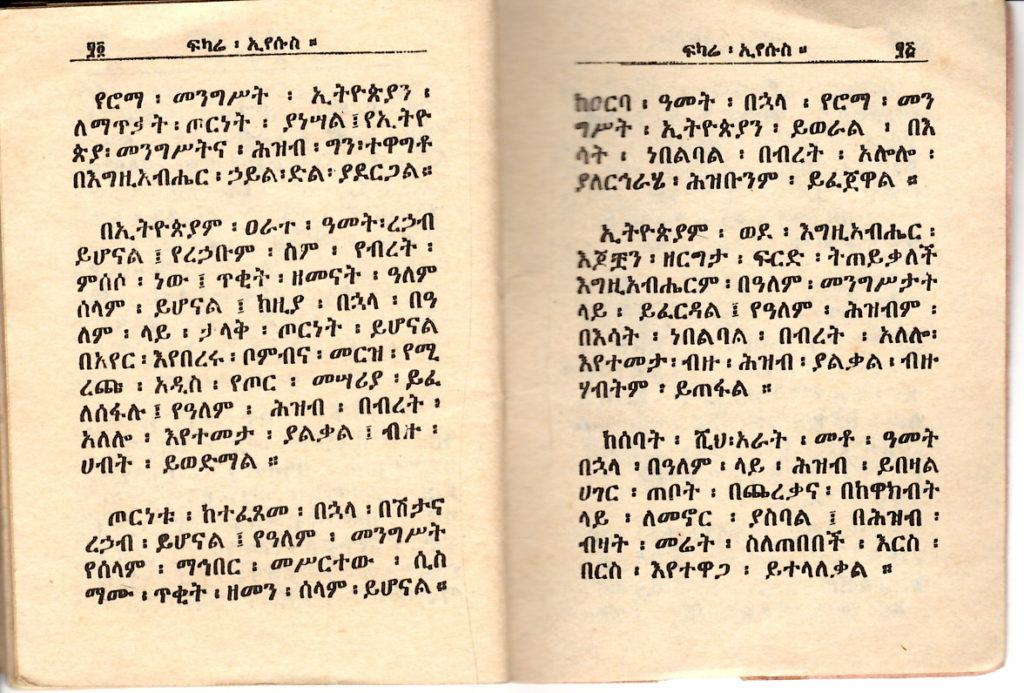 ፶፬ ፍካሬ ፡ ኢየሱስ ።
የሮማ ፡ መንግሥት ፡ ኢትዮጵያን ፡
ለማጥቃት ፡ ጦርነት ፡ ያነሣል ፤ የኢትዮ
ጵያ ፡ መንግሥትና ፡ ሕዝብ ፡ ግን ፡ ተዋግቶ
በእግዚአብሔር ፡ ኃይል ፡ ድል ፡ ያደርጋል ።
በኢትዮጵያም ፡ ዐራተ ፡ ዓመት ፡ ረኃብ
ይሆናል ፤ የረኃቡም ፡ ስም ፡ የብረት ፡
ምሰሶ ፡ ነው ፤ ጥቂት ፡ ዘመናት ፡ ዓለም
ሰላም ፡ ይሆናል ፤ ከዚያ ፡ በኋላ ፡ በዓ
ለም ፡ ላይ ፡ ታላቅ ፡ ጦርነት ፡ ይሆናል
በአየር ፡ እየበረሩ ፡ ቦምብና ፡ መርዝ ፡ የሚ
ረጩ ፡ አዲስ ፡ የጦር ፡ መሣሪያ ፡ ይፈ
ለሰፋሉ ፤ የዓለም ፡ ሕዝብ ፡ በብረት ፡
አለሎ ፡ እየተመታ ፡ ያልቃል ፤ ብዙ ፡
ሀብት ፡ ይወድማል ።
ጦርነቱ ፡ ከተፈጸመ ፡ በኋላ ፡ በሽታና
ረኃብ ፡ ይሆናል ፤ የዓለም ፡ መንግሥት
የሰላም ፡ ማኅበር ፡ መሥርተው ፡ ሲስ
ማሙ ፡ ጥቂት ፡ ዘመን ፡ ሰላም ፡ ይሆናል ።
ፍካሬ ፡ ኢየሱስ ።
ከዐርባ ፡ ዓመት ፡ በኋላ ፡ የሮማ ፡ መን
ግሥት ፡ ኢትዮጵያን ፡ ይወራል ፡ በእ
ሳት ፡ ነበልባል ፡ በብረት ፡ አሎሎ ፡
ያለርኅራሄ ፡ ሕዝቡንም ፡ ይፈጀዋል ።
ኢትዮጵያም ፡ ወደ ፡ እግዚአብሔር ፡
እጆቿን ፡ ዘርግታ ፡ ፍርድ ፡ ትጠይቃለች
እግዚአብሔርም ፡ በዓለም ፡ መንግሥታት
ላይ ፡ ይፈርዳል ፤ የዓለም ፡ ሕዝብም ፡
በእሳት ፡ ነበልባል ፡ በብረት ፡ አለሎ ፡
እየተመታ ፡ ብዙ ፡ ሕዝብ ፡ ያልቃል ፡ ብዙ
ሃብትም ፡ ይጠፋል ።
ከሰባት ፡ ሺህ ፡ አራት ፡ መቶ ፡ ዓመት
በኋላ ፡ በዓለም ፡ ላይ ፡ ሕዝብ ፡ ይበዛል
ሀገር ፡ ጠቦት ፡ በጨረቃና ፡ በከዋክብት
ላይ ፡ ለመኖር ፡ ያስባል ፤ በሕዝብ ፡
ብዛት ፡ መሬት ፡ ስለጠበበች ፡ እርስ ፡
በርስ ፡ እየተዋጋ ፡ ይተላለቃል ።